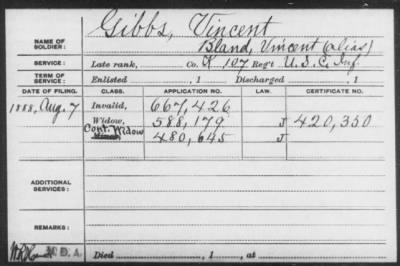 Gibbs, Vincent
NAME OF SOLDIER: Bland, Vincent (alias)
SERVICE: Late rank, Co. K 107 Reg't U.S.C. Inf
TERM OF SERVICE: Enlisted , 1 Discharged , 1
DATE OF FILING. CLASS. APPLICATION NO. LAW. CERTIFICATE NO.
1888, Aug. 7 Invalid, 667,426
Widow, 588,179 J 420,350
Cont. Widow
Minor, 480,645 J
ADDITIONAL SERVICES:
REMARKS:
Died , 1 , at